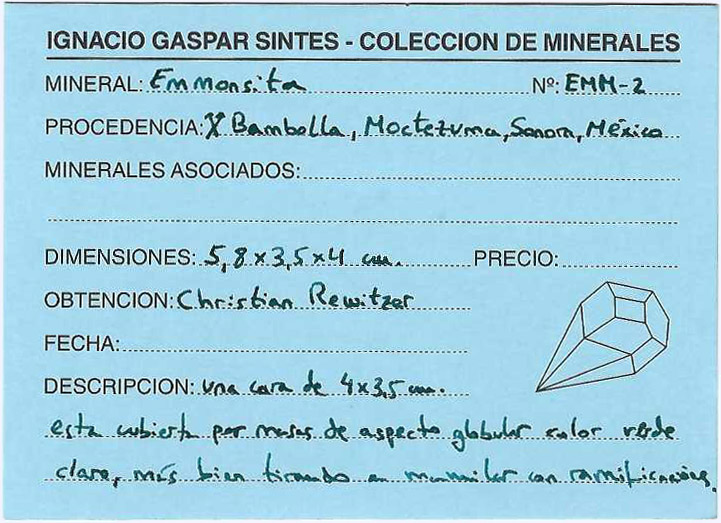 IGNACIO GASPAR SINTES - COLECCION DE MINERALES
MINERAL: Emmonsita Nº: EMM-2
PROCEDENCIA: Bambolla, Moctezuma, Sonora, México
MINERALES ASOCIADOS:
DIMENSIONES: 5,8 x 3,5 x 4 cm. PRECIO:
OBTENCION: Christian Rewitzer
FECHA:
DESCRIPCION: una cara de 4 x 3,5 cm.
esta cubierta por masas de aspecto globular color verde
claro, más bien tirando a mamilar con ramificaciones.